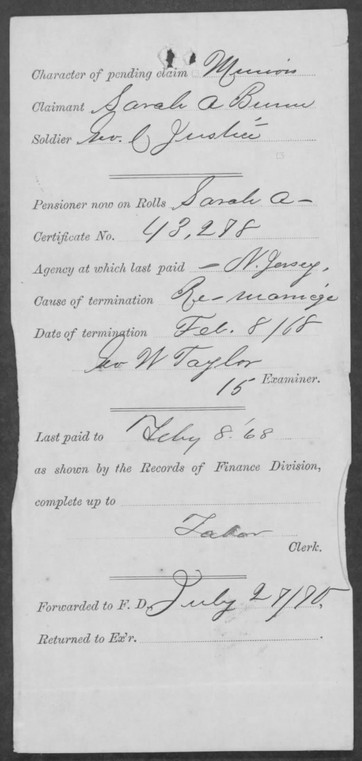 Character of pending claim Minors
Claimant Sarah A Bunn
Soldier Geo. C Justice
Pensioner now on Rolls Sarah A —
Certificate No. 43,278
Agency at which last paid — N. Jersey.
Cause of termination Re-marriage
Date of termination Feb. 8/68
Geo W Taylor
15 Examiner.
Last paid to Feby 8. '68
as shown by the Records of Finance Division,
complete up to
Clerk.
Forwarded to F. D. July 27/90.
Returned to Ex'r.